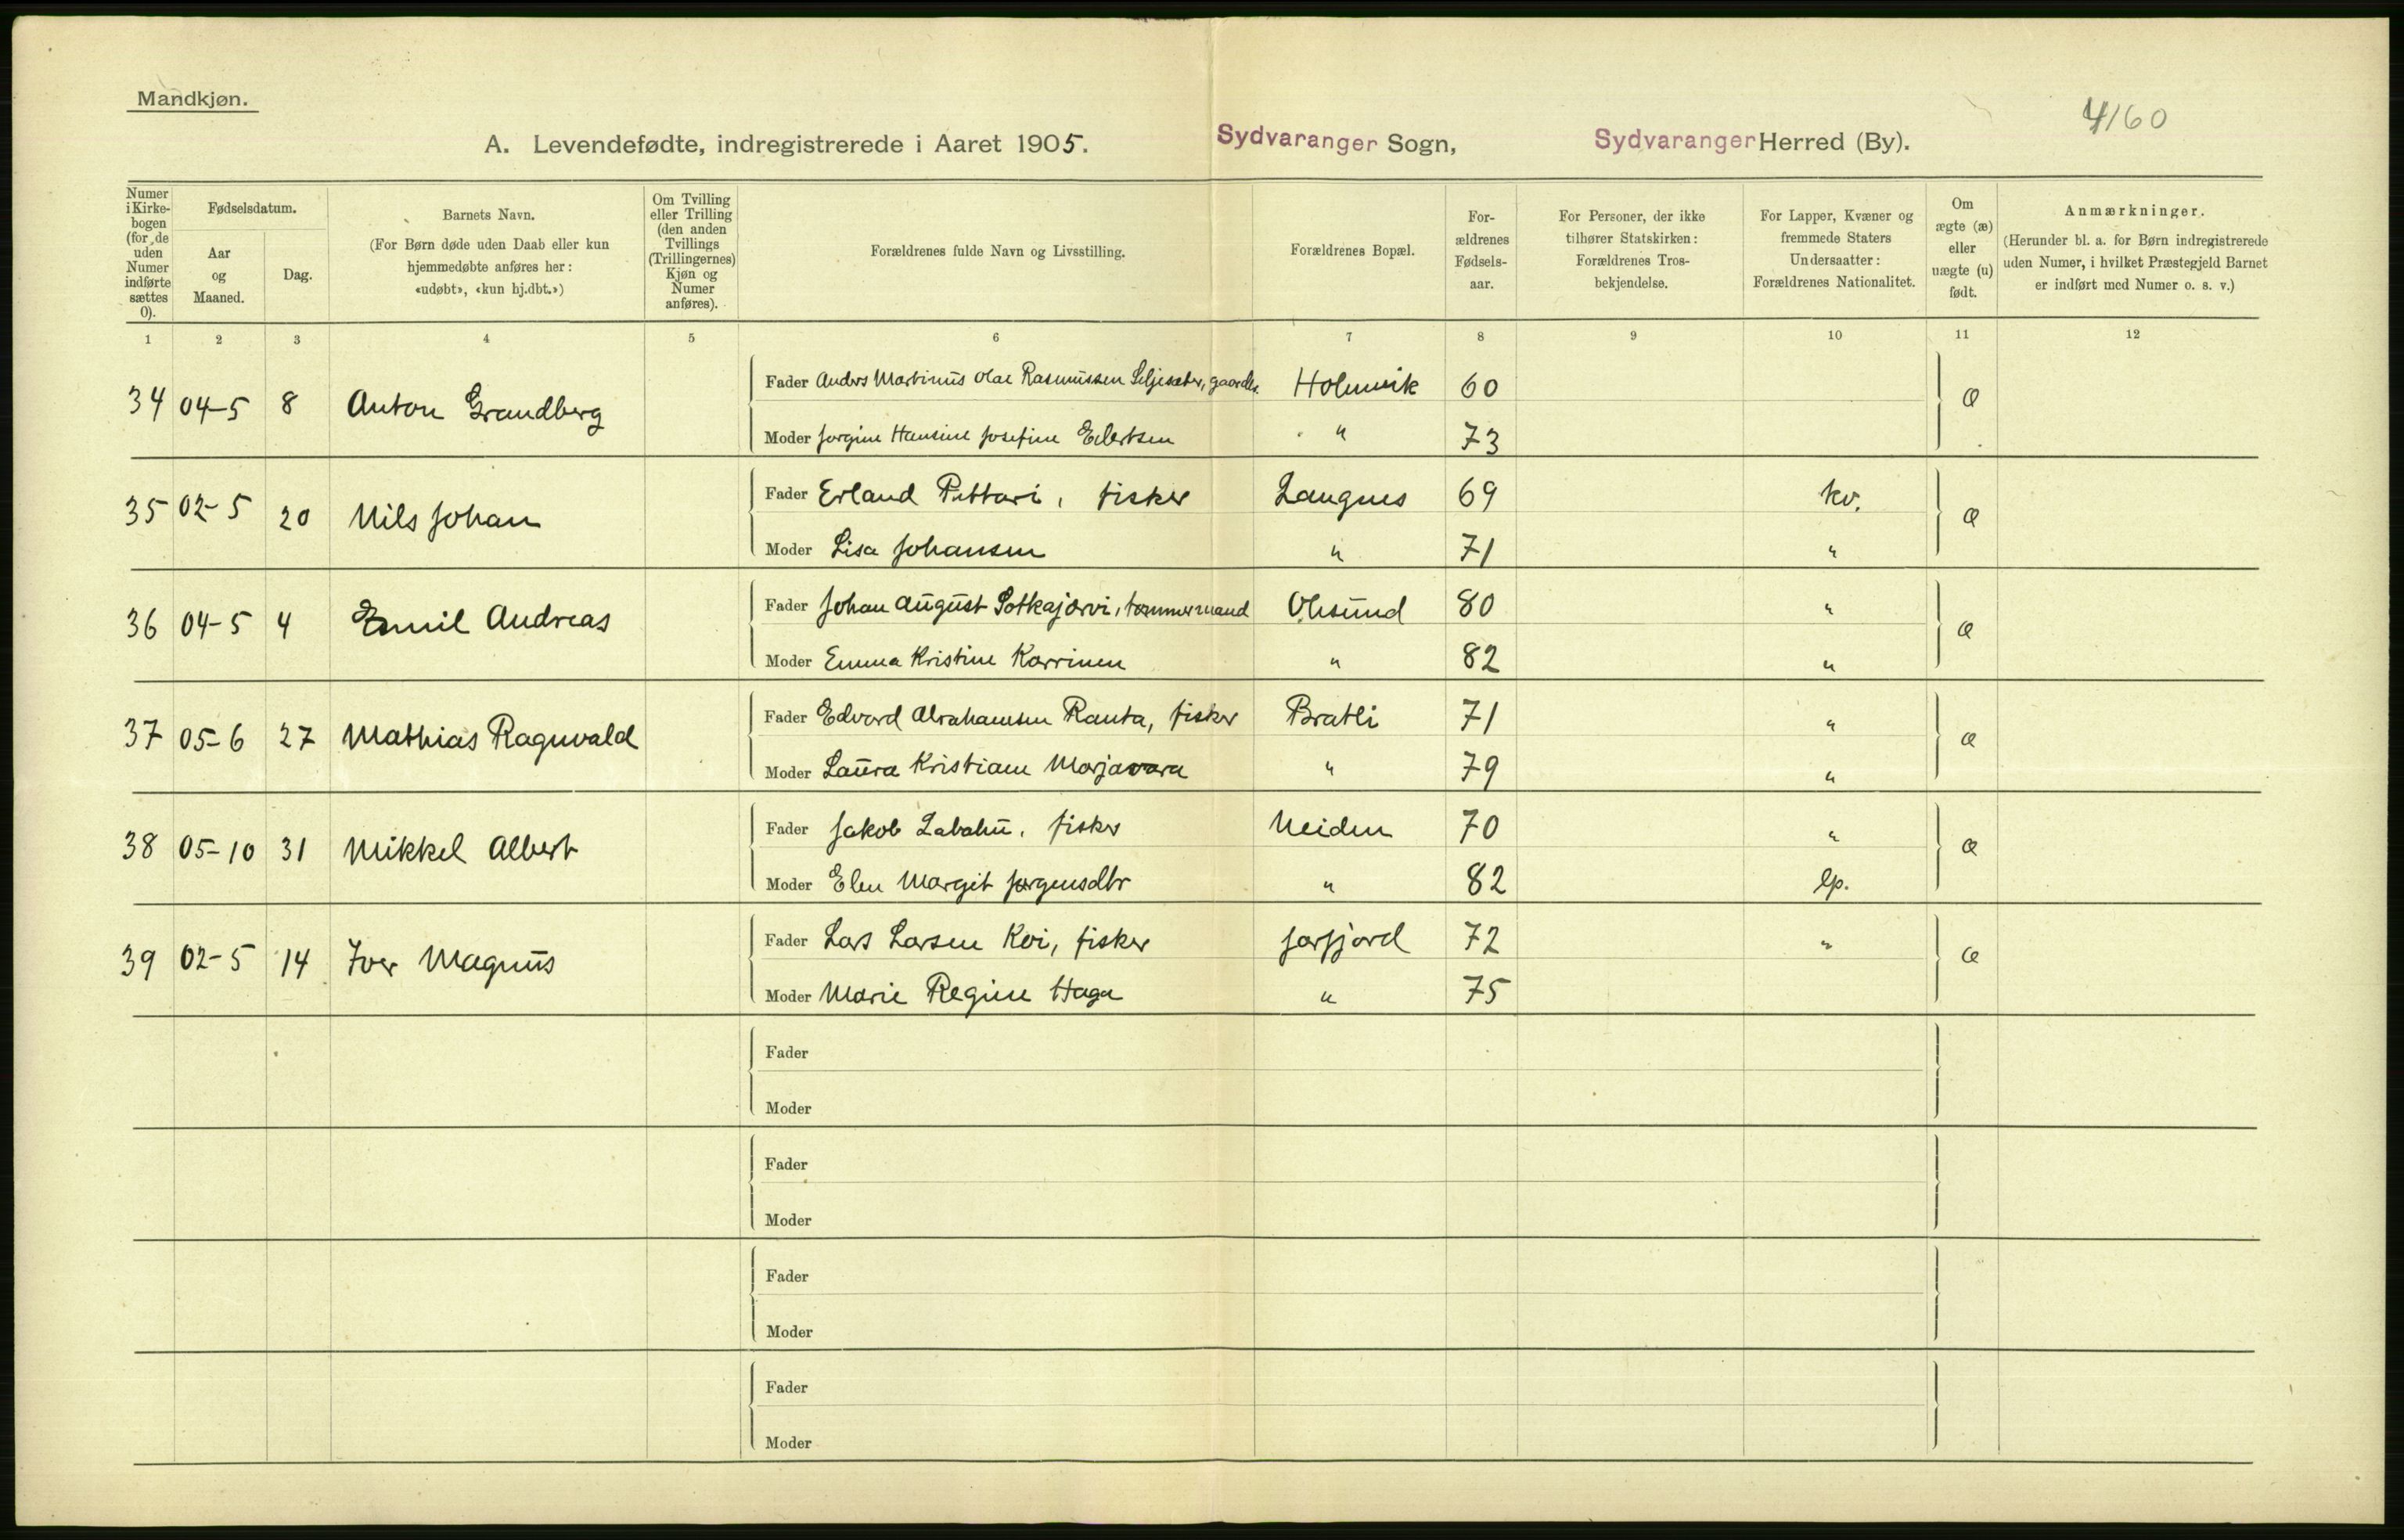 Mandkjøn.
4160
A. Levendefødte, indregistrerede i Aaret 1905. Sydvaranger Sogn, Sydvaranger Herred (By).
Numer i Kirke-bogen (for de uden Numer indførte sættes 0).
Fødselsdatum.
Aar og Maaned.
Dag.
Barnets Navn.
(For Børn døde uden Daab eller kun hjemmedøbte anføres her: «udøbt», «kun hj.dbt.»)
Om Tvilling eller Trilling (den anden Tvillings (Trillingernes) Kjøn og Numer anføres).
Forældrenes fulde Navn og Livsstilling.
Forældrenes Bopæl.
For-ældrenes Fødsels-aar.
For Personer, der ikke tilhører Statskirken: Forældrenes Tros-bekjendelse.
For Lapper, Kvæner og fremmede Staters Undersaatter: Forældrenes Nationalitet.
Om ægte (æ) eller uægte (u) født.
Anmærkninger.
(Herunder bl. a. for Børn indregistrerede uden Numer, i hvilket Præstegjeld Barnet er indført med Numer o. s. v.)
1 2 3 4 5 6 7 8 9 10 11 12
34 04-5 8 Anton Grandberg Fader Anders Martinus Olai Rasmussen Seljesæter, gaardbr. Holmvik 60 æ
Moder Jørgine Hansine Josefine Eilertsen " 73
35 02-5 20 Nils Johan Fader Erland Pittari, fisker Langnes 69 kv. æ
Moder Lisa Johansen " 71 "
36 04-5 4 Emil Andreas Fader Johan August Sotkajærvi, tømmermand 80 " æ
Moder Emma Kristine Karrinen " 82 "
37 05-6 27 Mathias Ragnvald Fader Edvard Abrahamsen Ranta, fisker Bratli 71 " æ
Moder Laura Kristiane Marjavara " 79 "
38 05-10 31 Mikkel Albert Fader Jakob Labahu, fisker Neiden 70 " æ
Moder Elen Margit Jørgensdtr " 82 lp.
39 02-5 14 Iver Magnus Fader Lars Larsen Koi, fisker Jarfjord 72 " æ
Moder Marie Regine Haga " 75
Fader
Moder
Fader
Moder
Fader
Moder
Fader
Moder